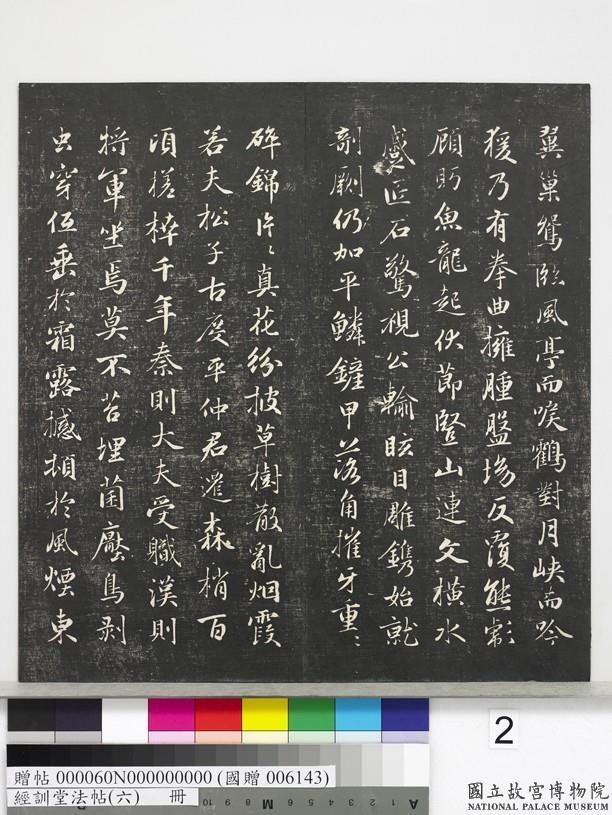 巢鴛臨風亭而唳鶴對月峽而吟
猨乃有拳曲擁腫盤坳反覆熊彪
顧盼魚龍起伏節竪山連文橫水
蹙匠石驚視公輸眩目雕鐫始就
剞劂仍加平鱗鏟甲落角摧牙重ミ
碎錦片ミ真花紛披草樹散亂烟霞
若夫松子古度平仲君遷森梢百
頃槎枿千年秦則大夫受職漢則
將軍坐焉莫不苔埋菌壓鳥剥
虫穿低垂於霜露撼頓於風煙東
2
贈帖 000060N000000000 (國贈 006143)
經訓堂法帖(六) 冊
國立故宮博物院
NATIONAL PALACE MUSEUM